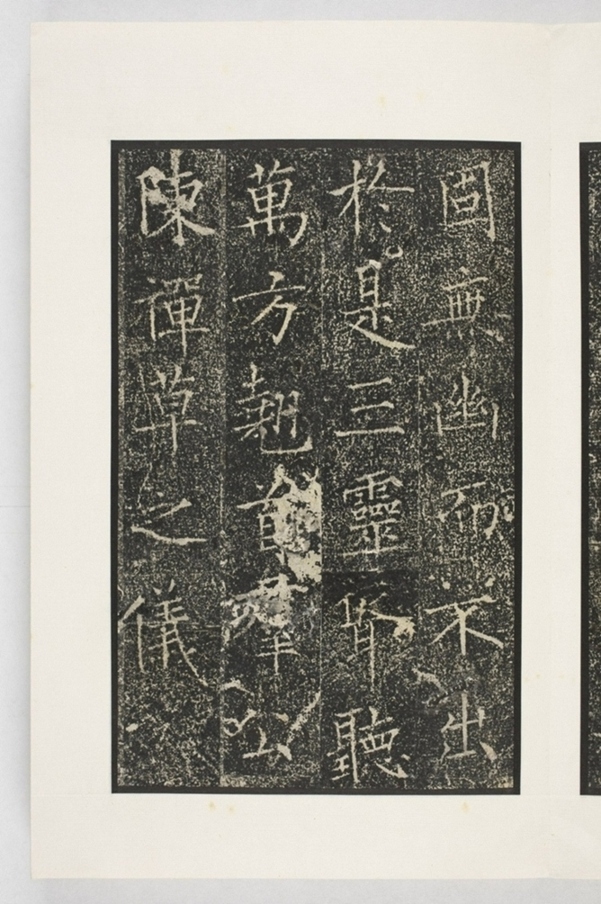 固無幽而不出
於是三靈聳聽
萬方翹首羣公
陳禪草之儀